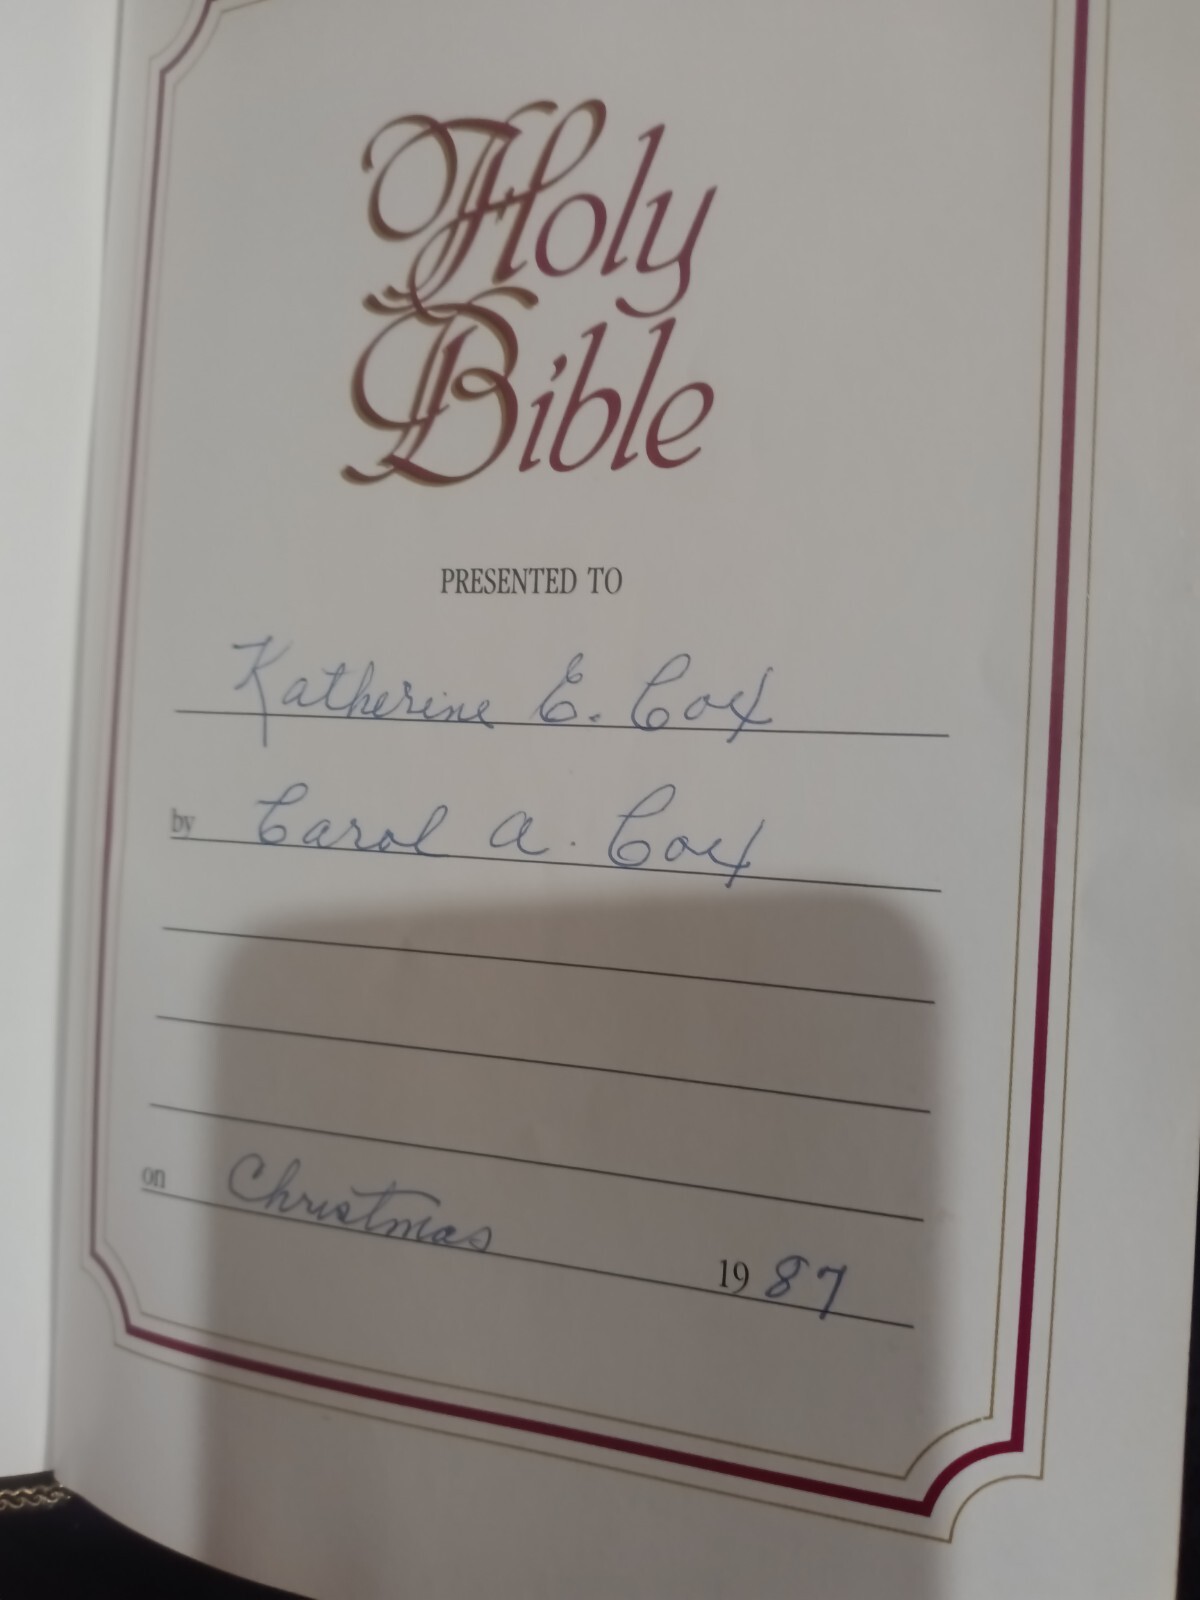 Holy
Bible
PRESENTED TO
Katherine E. Cox
by Carol A. Cox
on Christmas 1987